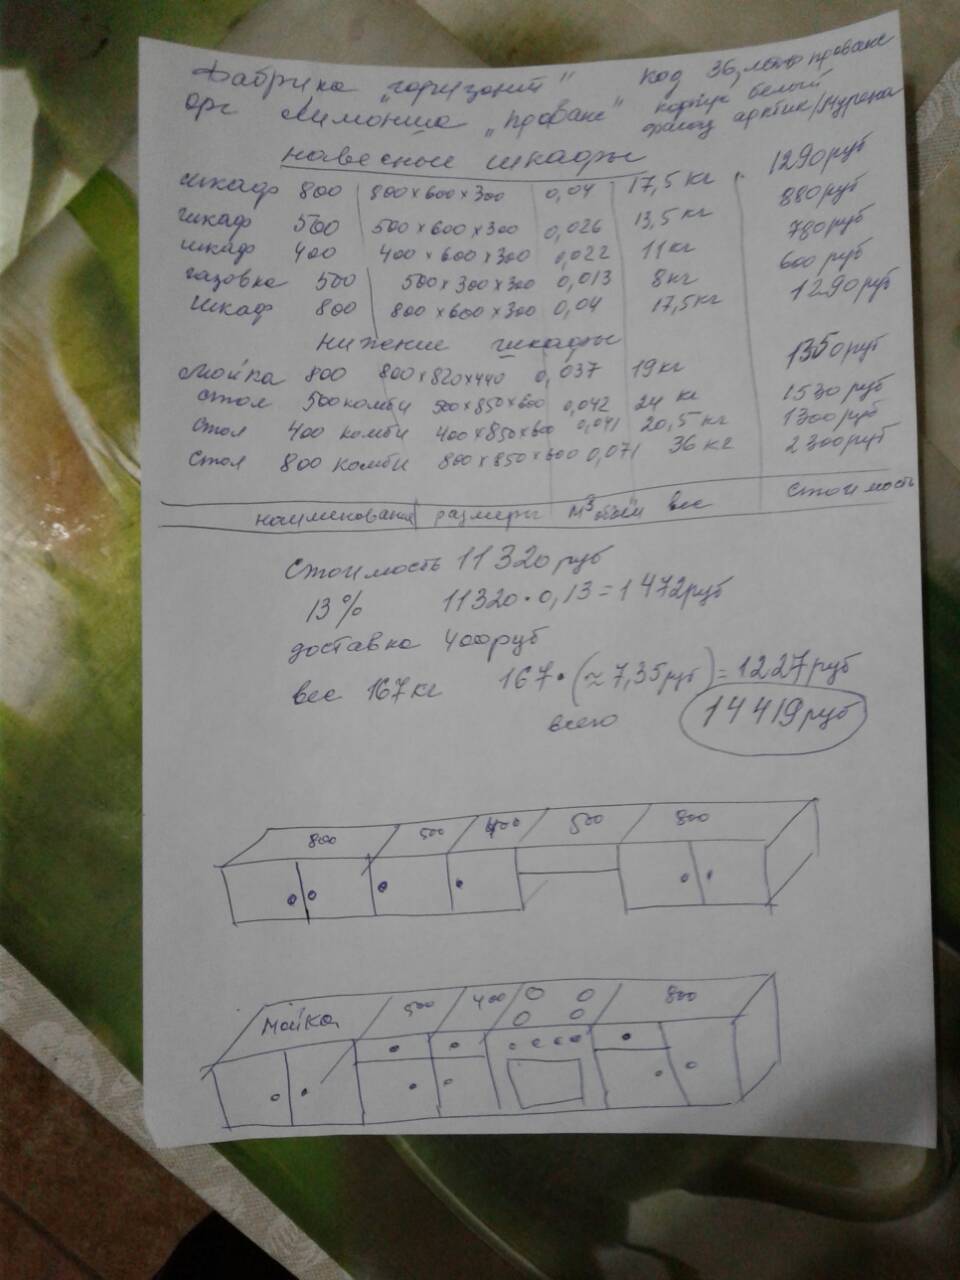 Фабрика "горизонт" код 36, лето прованс
орг Лимонив "Прованс" корпус белый
фасад арктик/мурена
навесные шкафы
шкаф 800 800×600×300 0,04 17,5 кг 1290руб
шкаф 500 500×600×300 0,026 13,5 кг 880руб
шкаф 400 400×600×300 0,022 11кг 780руб
газовка 500 500×300×300 0,013 8кг 600 руб
шкаф 800 800×600×300 0,04 17,5кг 1290руб
нижение шкафы
Мойка 800 800×820×440 0,037 19кг 1350руб
стол 500комби 500×850×600 0,042 24 кг 1530руб
стол 400 комби 400×850×600 0,041 20,5 кг 1300руб
стол 800 комби 800×850×600 0,071 36 кг 2300руб
наименование размеры м³ объём вес стоимость
Стоимость 11320руб
13% 11320·0,13=1472руб
доставка 400руб
вес 167кг 167·(≈7,35руб)=1227руб
всего 14419руб
800 500 400 500 800
Мойка 500 400 800